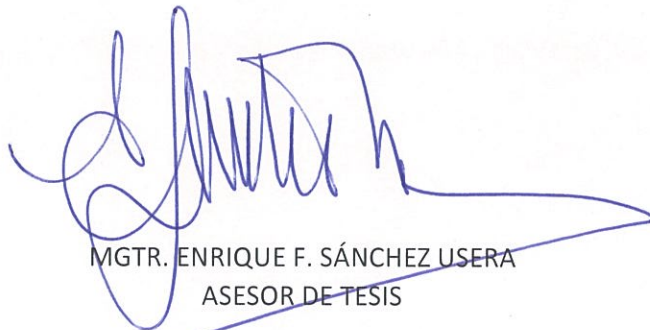 MGTR. ENRIQUE F. SÁNCHEZ USERA
ASESOR DE TESIS